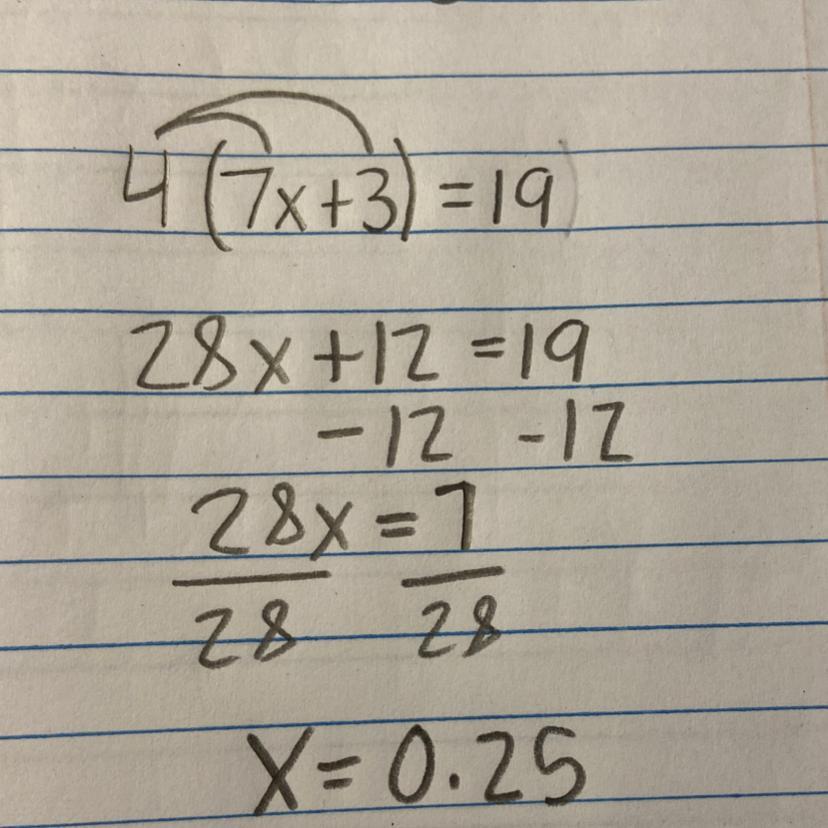 4(7x+3)=19
28x+12=19
-12 -12
28x=7
28 28
x=0.25